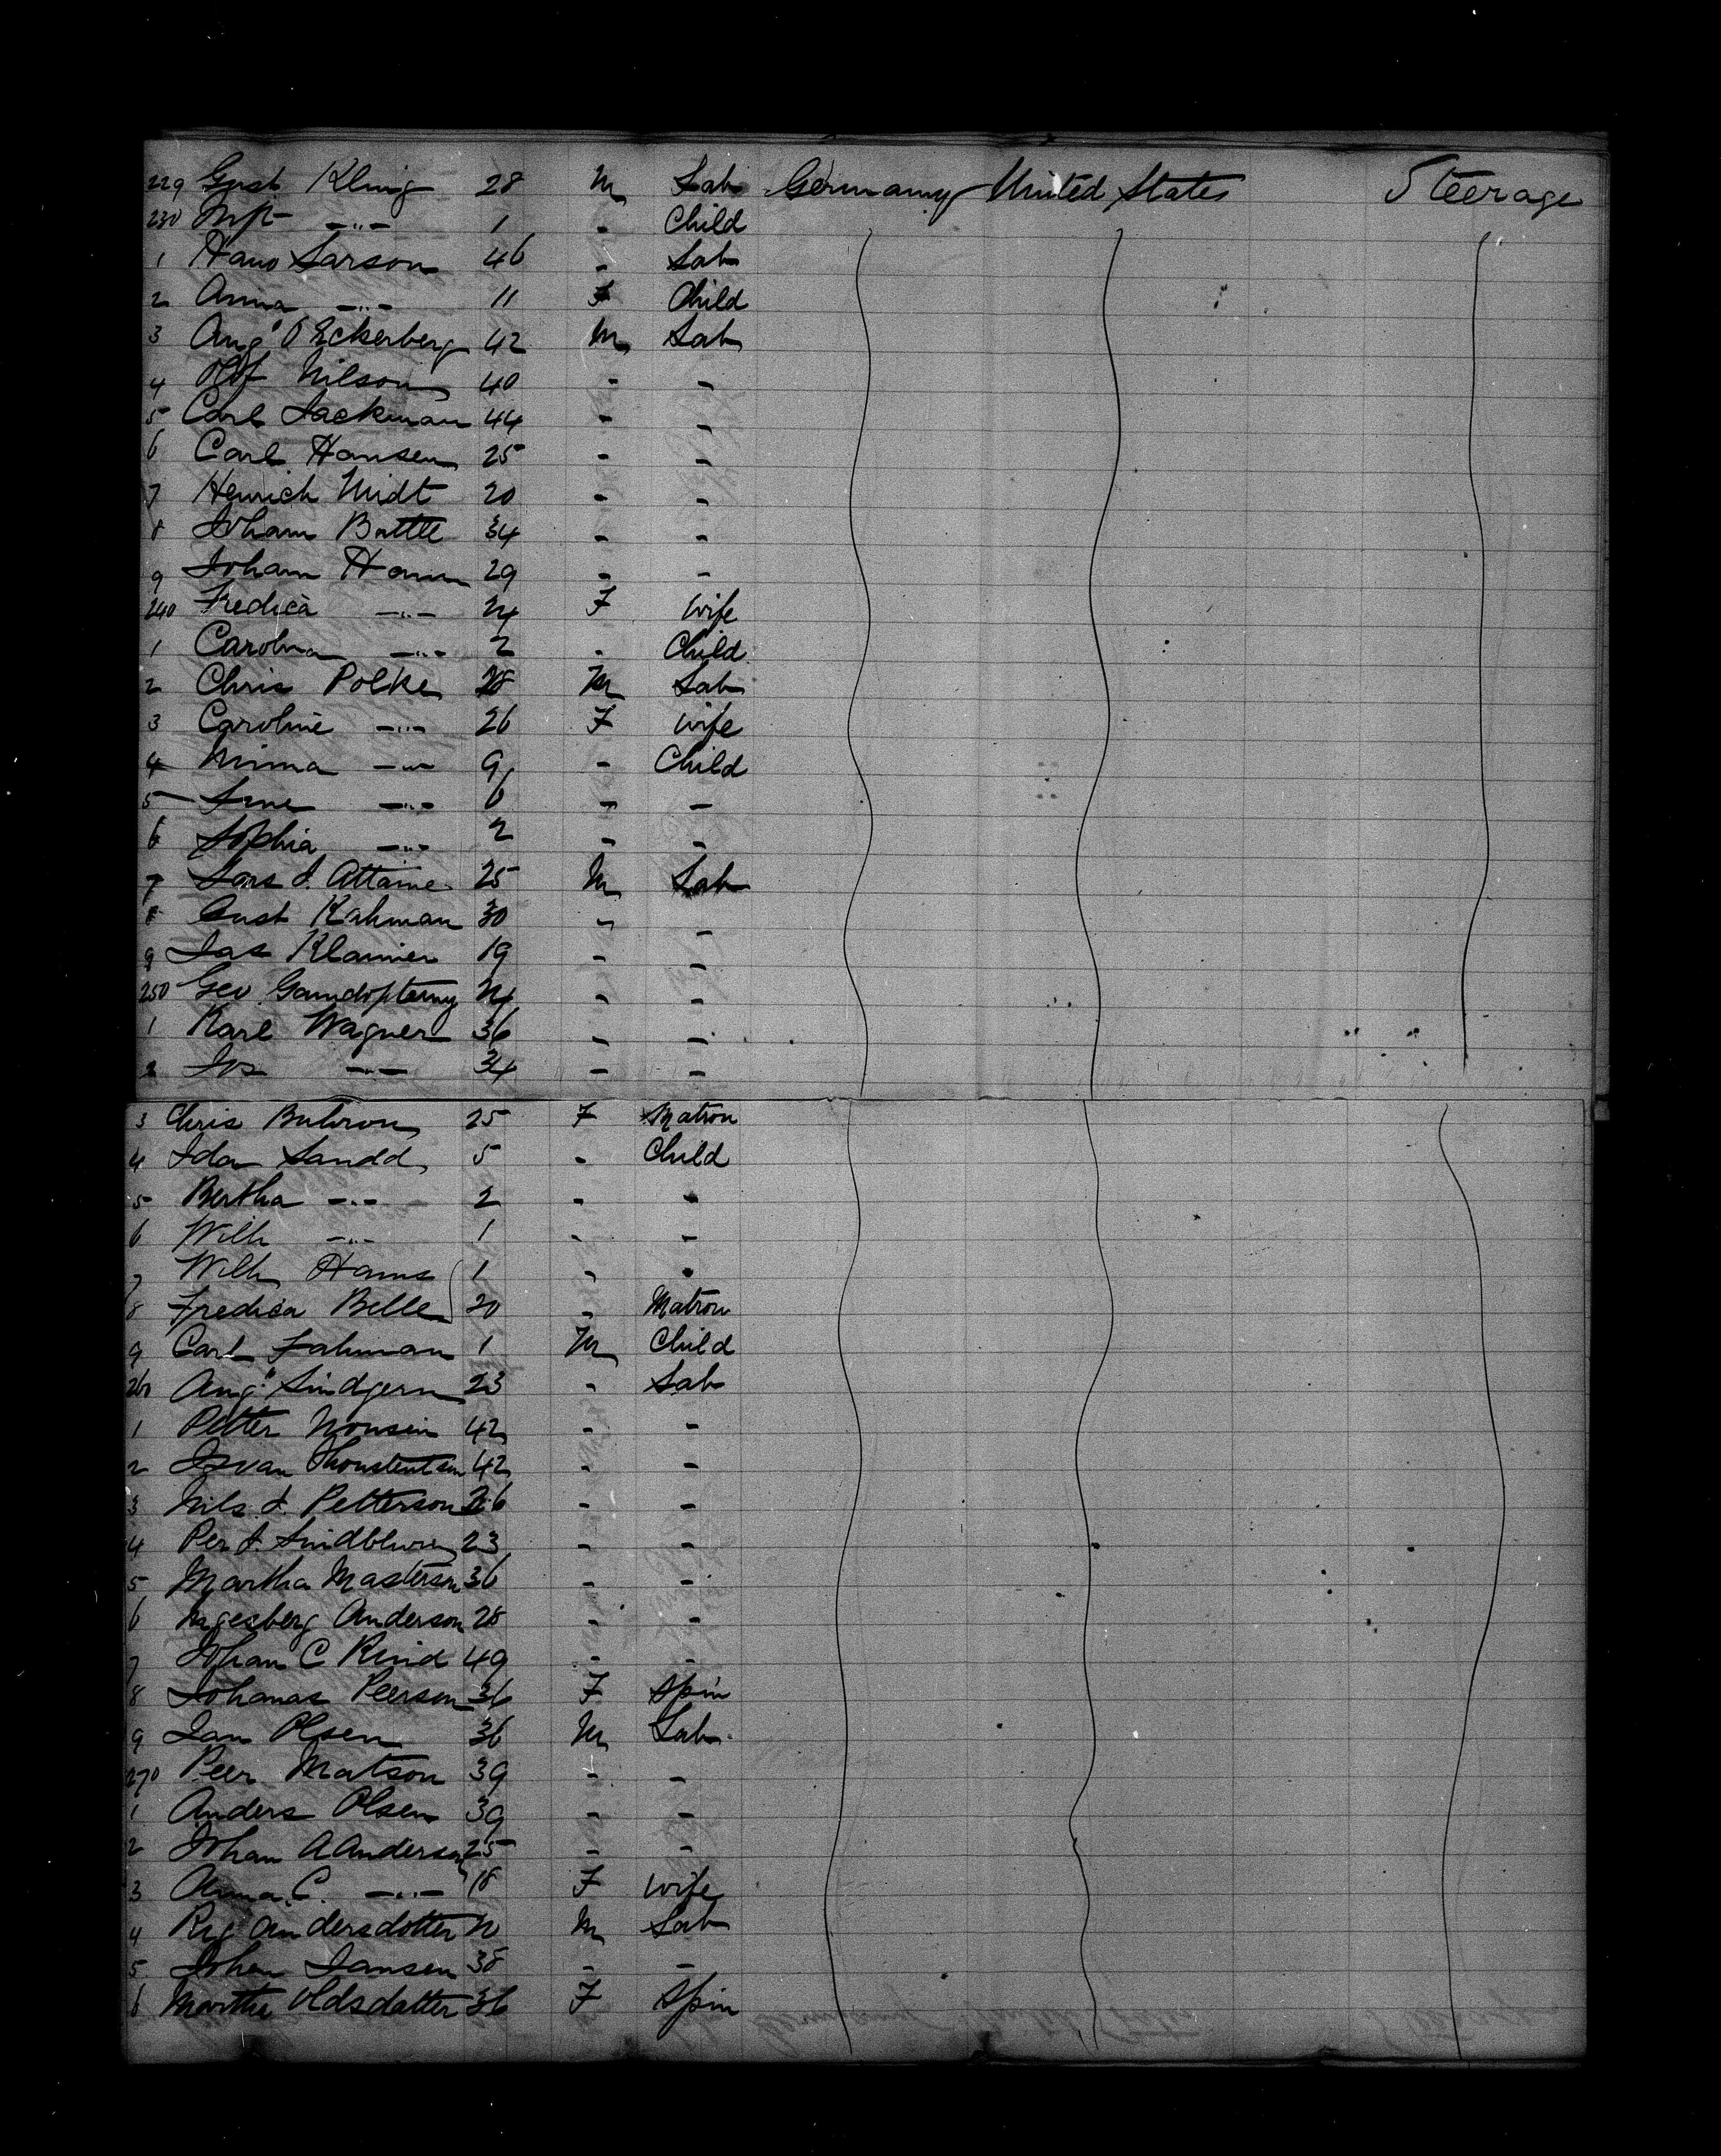 229 Gust Kling 28 M Lab Germany United States Steerage
230 Inft —"— 1 - Child
1 Hans Larson 46 - Lab
2 Anna —"— 11 F Child
3 Aug" O Eckerberg 42 M Lab
4 Olof Nilson 40 - -
5 Carl Lackman 44 - -
6 Carl Hansen 25 - -
7 Henrich Midt 20 - -
8 Johann Battle 34 - -
9 Johann Hamm 29 - -
240 Fredica —"— 24 F Wife
1 Carolina —"— 2 - Child
2 Chris Polke 28 M Lab
3 Caroline —"— 26 F Wife
4 Minna —"— 9 - Child
5 —"— 6 - -
6 Sophia —"— 2 - -
7 Lars J. Attaine 25 M Lab
8 Gust Kahman 30 - -
9 Jas Klamier 19 - -
250 Geo 24 - -
1 Karl Wagner 36 - -
2 Jos —"— 34 - -
3 Chris Buhron 25 F Matron
4 Ida Sandd 5 - Child
5 Bertha —"— 2 - -
6 Wilh —"— 1 - -
7 Wilh Hams 1 - -
8 Fredica Belle 20 - Matron
9 Carl Fahman 1 M Child
260 Aug" Lindgern 23 - Lab
1 Petter Nonsen 42 - -
2 42 - -
3 Nils J. Petterson 26 - -
4 Per J. 23 - -
5 Martha Masterson 36 - -
6 Ingesberg Anderson 28 - -
7 Johan C Rind 49 - -
8 Johanas Peerson 36 F Spin
9 Jan Olsen 36 M Lab
270 Peer Matson 39 - -
1 Anders Olsen 39 - -
2 Johan A Anderson 25 - -
3 Anna C. —"— 18 F Wife
4 Andersdotter 20 M Lab
5 Johan Jansen 38 - -
6 Martha Oldsdatter 36 F Spin